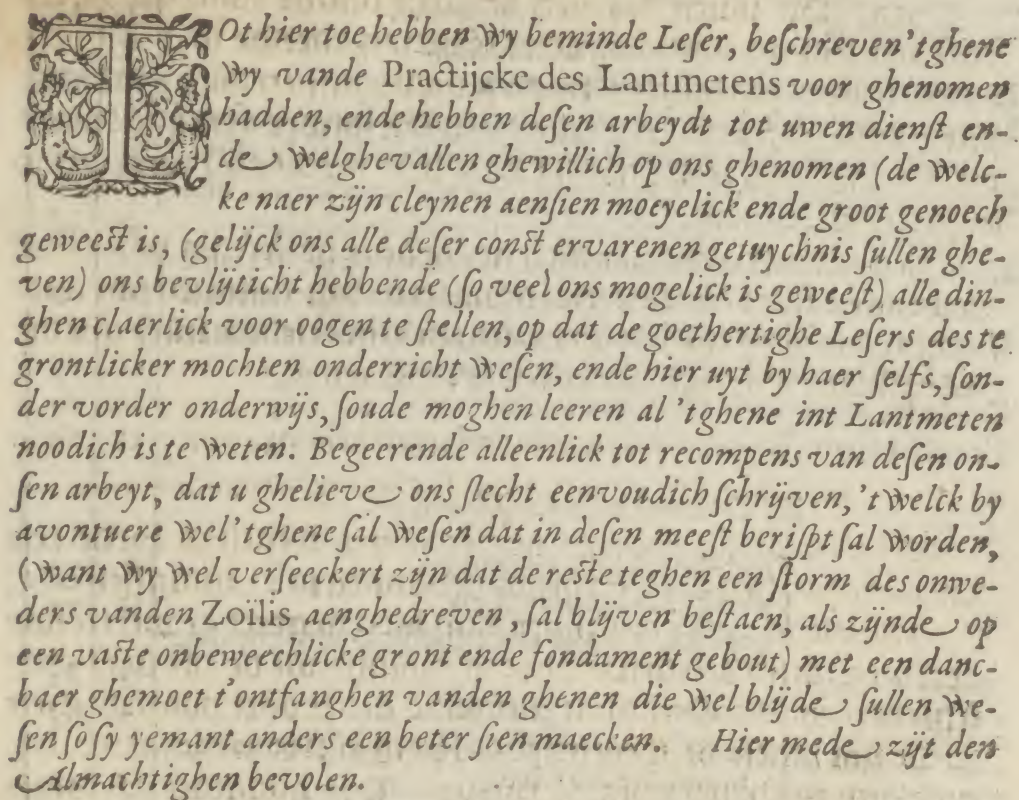 TOt hier toe hebben wy beminde Leſer, beſchreven 'tghene
wy vande Practijcke des Lantmetens voor ghenomen
hadden, ende hebben deſen arbeydt tot uwen dienſt en-
de welghevallen ghewillich op ons ghenomen (de welc-
ke naer zijn cleynen aenſien moeyelick ende groot genoech
geweeſt is, (gelijck ons alle deſer conſt ervarenen getuychnis ſullen ghe-
ven) ons bevlijticht hebbende (ſo veel ons mogelick is geweeſt) alle din-
ghen claerlick voor oogen te ſtellen, op dat de goethertighe Leſers des te
grontlicker mochten onderricht weſen, ende hier uyt by haer ſelfs, ſon-
der vorder onderwijs, ſoude moghen leeren al 'tghene int Lantmeten
noodich is te weten. Begeerende alleenlick tot recompens van deſen on-
ſen arbeyt, dat u ghelieve ons ſlecht eenvoudich ſchrijven, 't welck by
avontuere wel 'tghene ſal weſen dat in deſen meeſt beriſpt ſal worden,
(want wy wel verſeeckert zijn dat de reſte teghen een ſtorm des onwe-
ders vanden Zoïlis aenghedreven, ſal blijven beſtaen, als zijnde op
een vaſte onbeweechlicke gront ende fondament gebout) met een danc-
baer ghemoet t'ontfanghen vanden ghenen die wel blijde ſullen we-
ſen ſo ſy yemant anders een beter ſien maecken. Hier mede zijt den
Almachtighen bevolen.